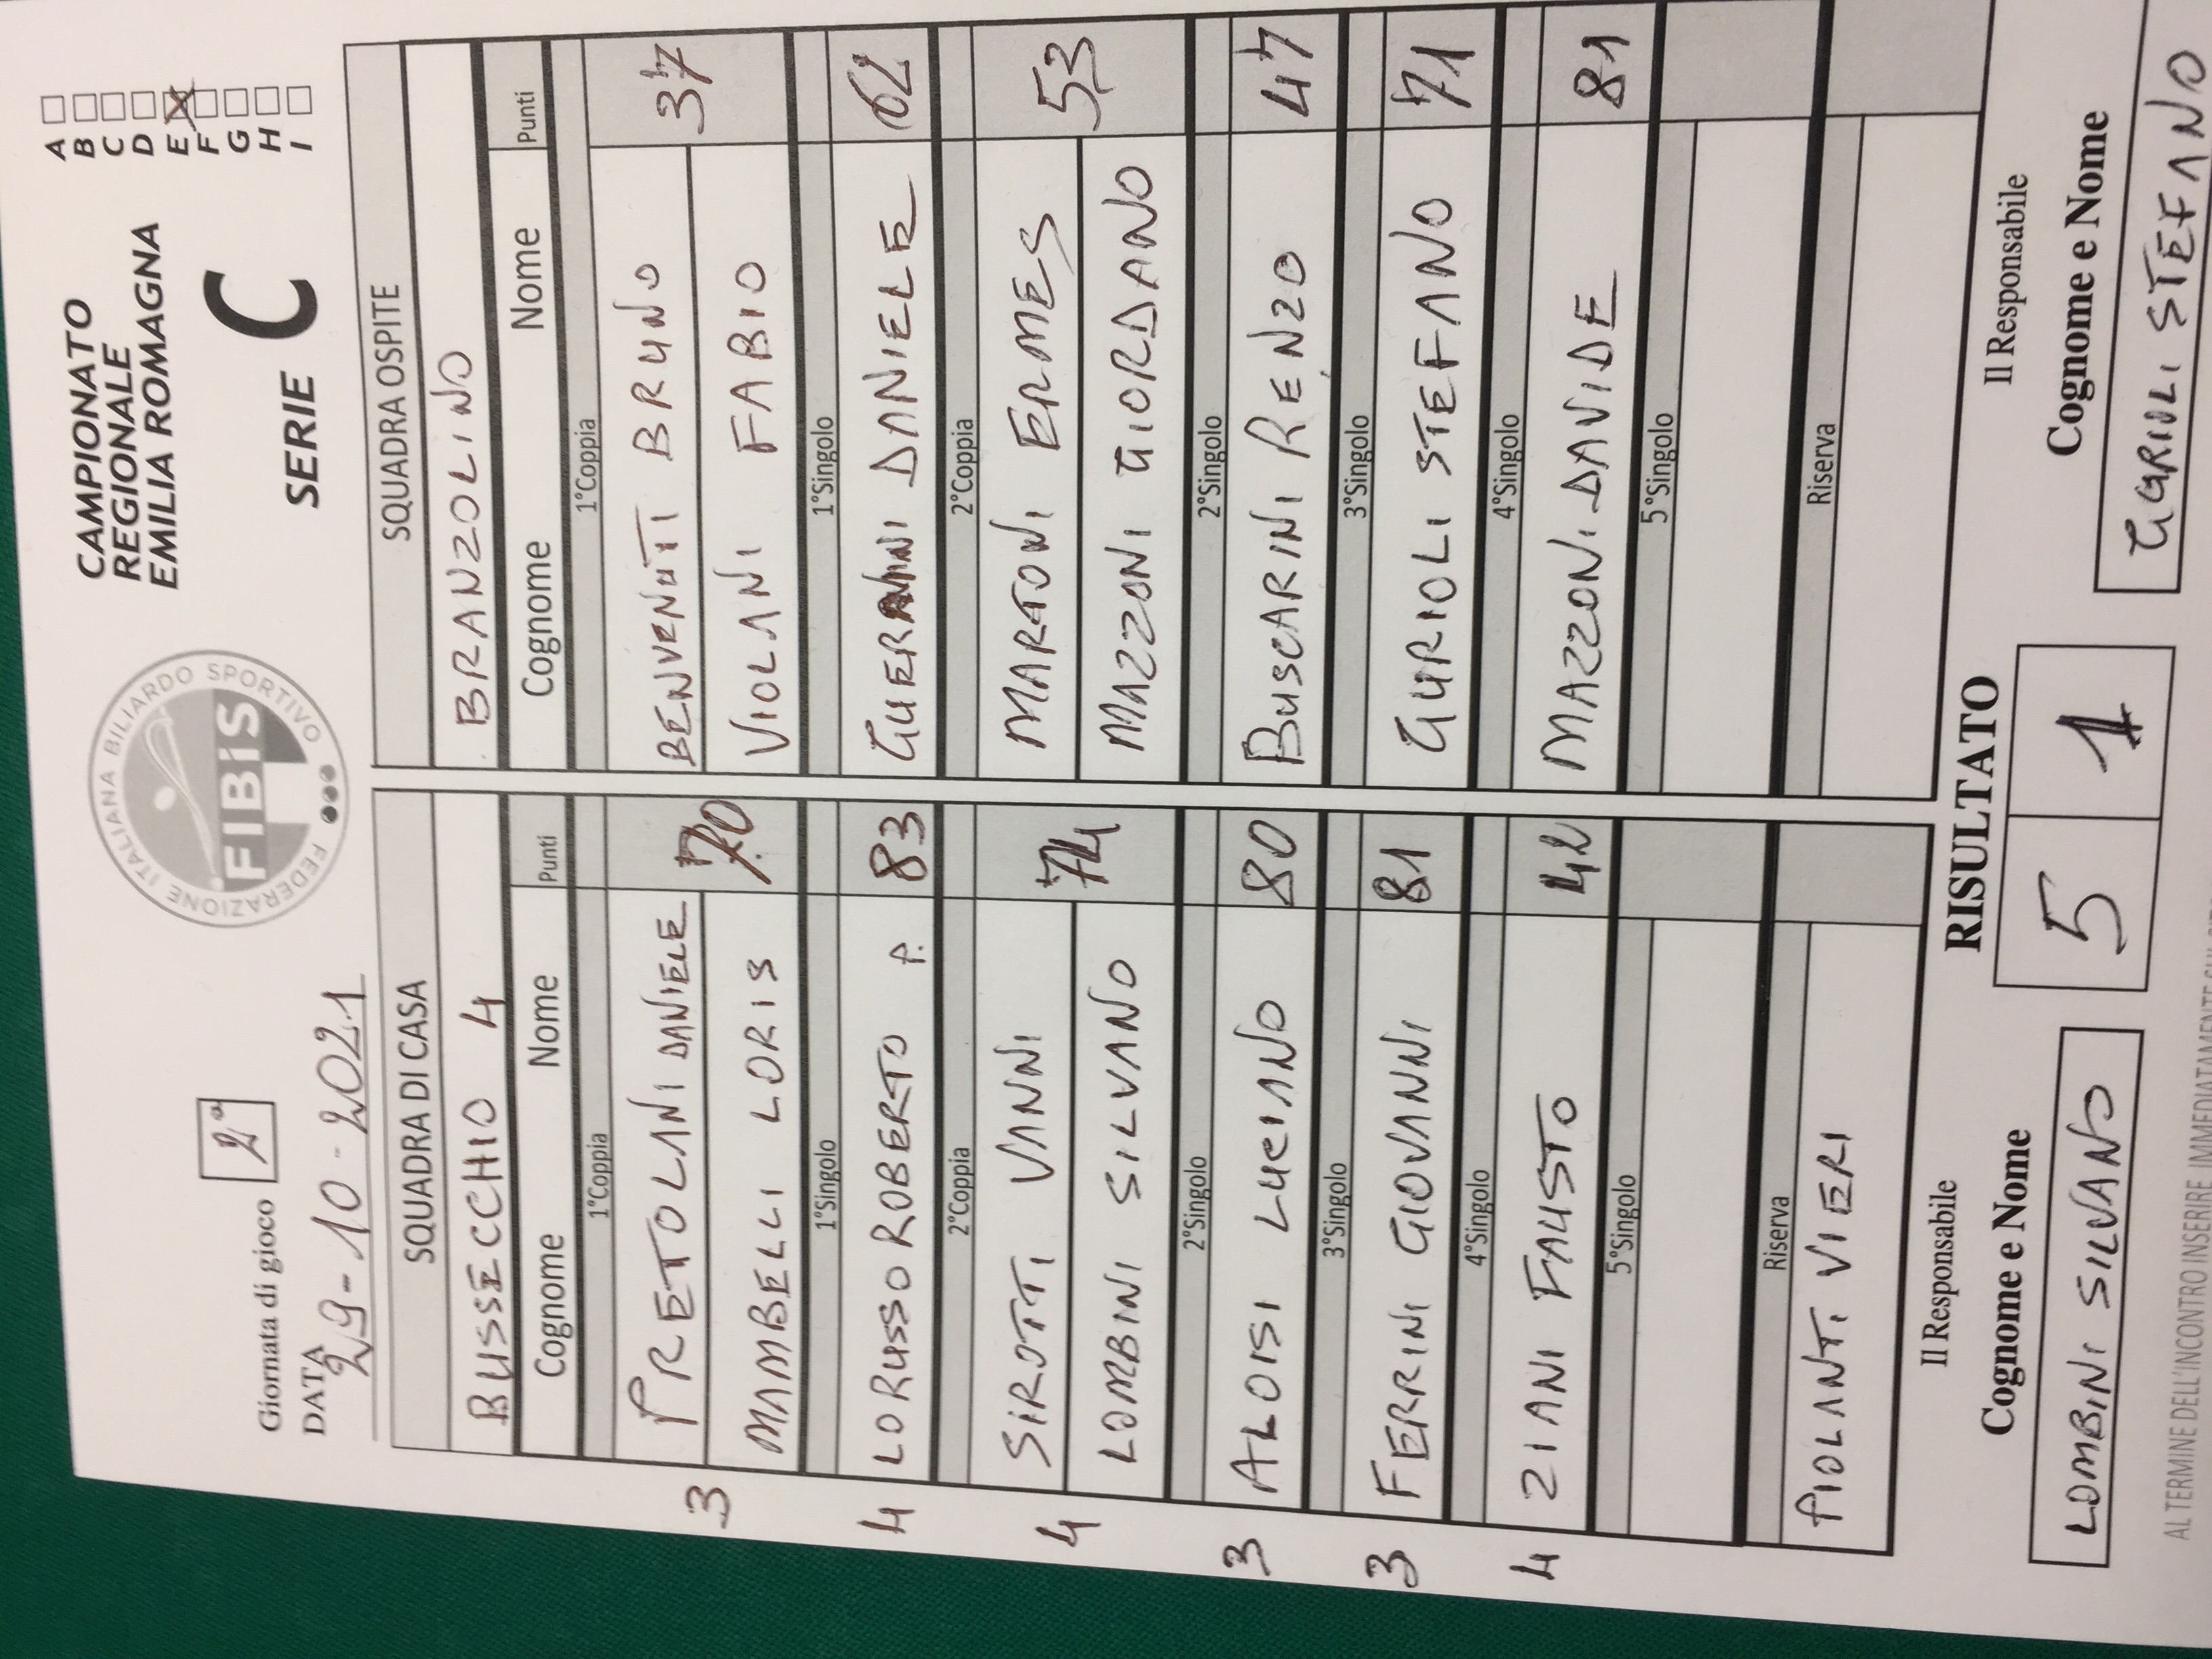 Giornata di gioco 2ª
DATA 29-10-2021
FEDERAZIONE ITALIANA BILIARDO SPORTIVO
FIBiS
CAMPIONATO
REGIONALE
EMILIA ROMAGNA
SERIE C
A
B
C
D
E X
F
G
H
I
SQUADRA DI CASA
BUSSECCHIO 4
Cognome Nome Punti
1°Coppia
3 PRETOLANI DANIELE 70
MAMBELLI LORIS
1°Singolo
4 LORUSSO ROBERTO A. 83
2°Coppia
4 SIROTTI VANNI 74
LOMBINI SILVANO
2°Singolo
3 ALOISI LUCIANO 80
3°Singolo
3 FERRINI GIOVANNI 81
4°Singolo
4 ZIANI FAUSTO 42
5°Singolo
Riserva
FIOLANTI VIERI
SQUADRA OSPITE
BRANZOLINO
Cognome Nome Punti
1°Coppia
BENVENUTI BRUNO 37
VIOLANI FABIO
1°Singolo
DANIELE 62
2°Coppia
MARTONI ERMES 53
MAZZONI GIORDANO
2°Singolo
BUSCARINI RENZO 47
3°Singolo
GURIOLI STEFANO 71
4°Singolo
MAZZONI DAVIDE 81
5°Singolo
Riserva
Il Responsabile
Cognome e Nome
LOMBINI SILVANO
RISULTATO
5 1
Il Responsabile
Cognome e Nome
GURIOLI STEFANO
AL TERMINE DELL'INCONTRO INSERIRE IMMEDIATAMENTE